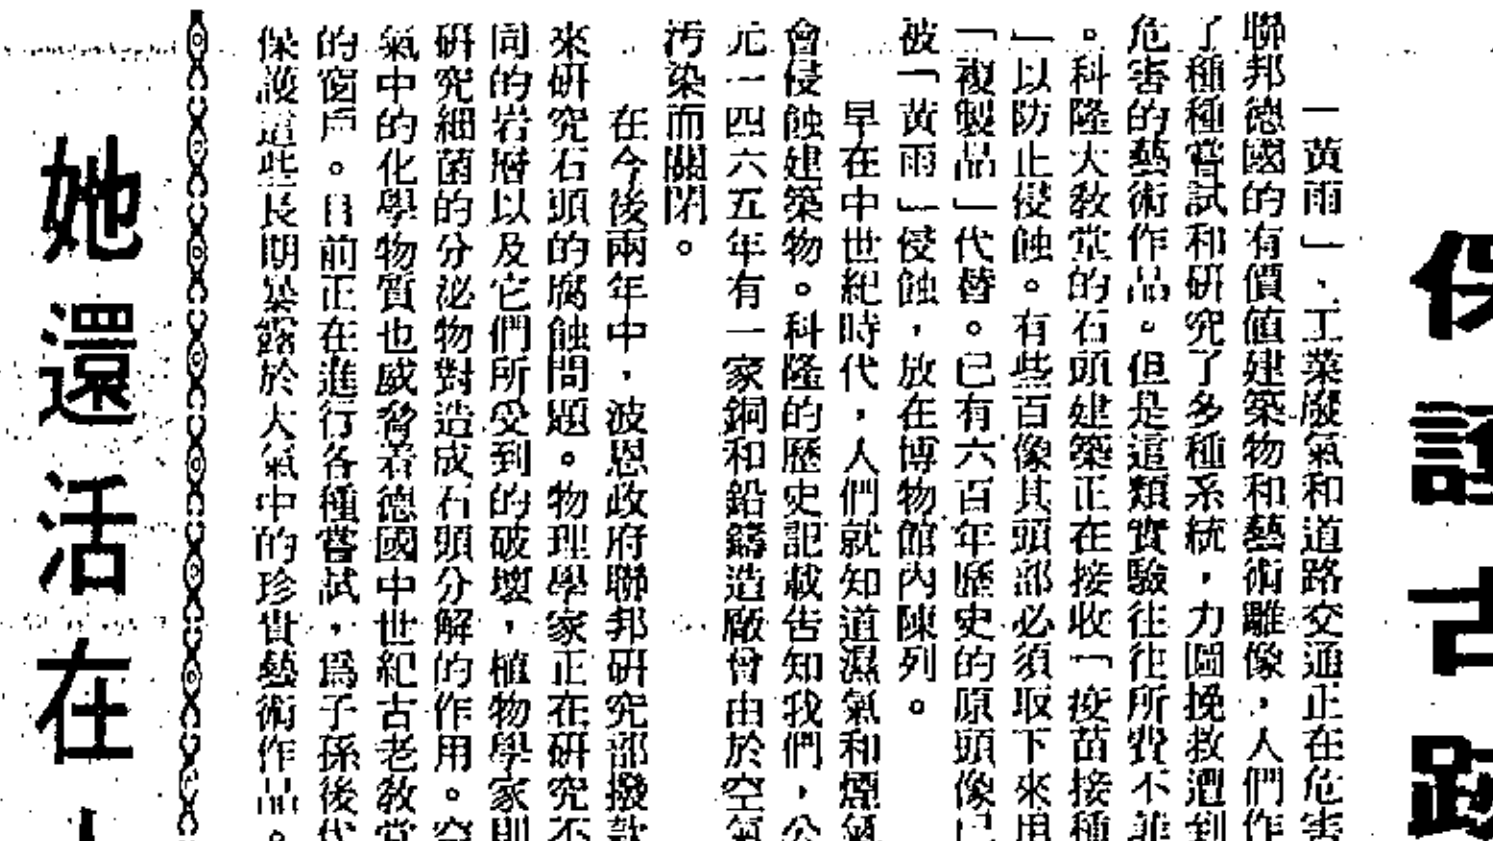 保護古蹟
「黃雨」、工業廢氣和道路交通正在危害
聯邦德國的有價值建築物和藝術雕像，人們作
了種種嘗試和研究了多種系統，力圖挽救遭到
危害的藝術作品。但是這類實驗往往所費不菲
。科隆大教堂的石頭建築正在接收「疫苗接種
」以防止侵蝕。有些百像其頭部必須取下來用
「複製品」代替。已有六百年歷史的原頭像已
被「黃雨」侵蝕，放在博物館內陳列。
早在中世紀時代，人們就知道濕氣和煙氣
會侵蝕建築物。科隆的歷史記載告知我們，公
元一四六五年有一家銅和鉛鑄造廠曾由於空氣
污染而關閉。
在今後兩年中，波恩政府聯邦研究部撥款
來研究石頭的腐蝕問題。物理學家正在研究不
同的岩層以及它們所受到的破壞，植物學家則
研究細菌的分泌物對造成石頭分解的作用。空
氣中的化學物質也威脅着德國中世紀古老教堂
的窗戶。目前正在進行各種嘗試，爲子孫後代
保護這些長期暴露於大氣中的珍貴藝術作品。
她還活在